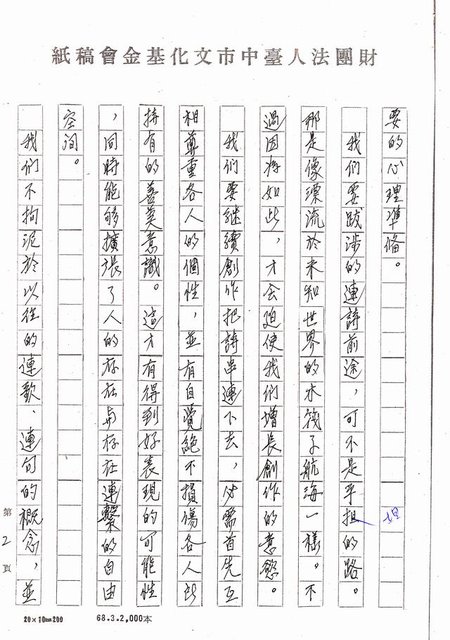 財團法人臺中市文化基金會稿紙
要的心理準備。
我們要跋涉的連詩前途，可不是平担的路。
坦
那是像漂流於未知世界的木筏子航海一樣。不
過因為如此，才会迫使我們增長創作的意慾。
我們要継續創作把詩串連下去，必需首先互
相尊重各人的個性，並有自覚絕不損傷各人所
持有的善美意識。這才有得到好表現的可能性
，同時能够擴張了人的存在与存在連繫的自由
空间。
我们不拘泥於以往的連歌、連句的概念，並
第2頁
20×10=200
68.3.2,000本